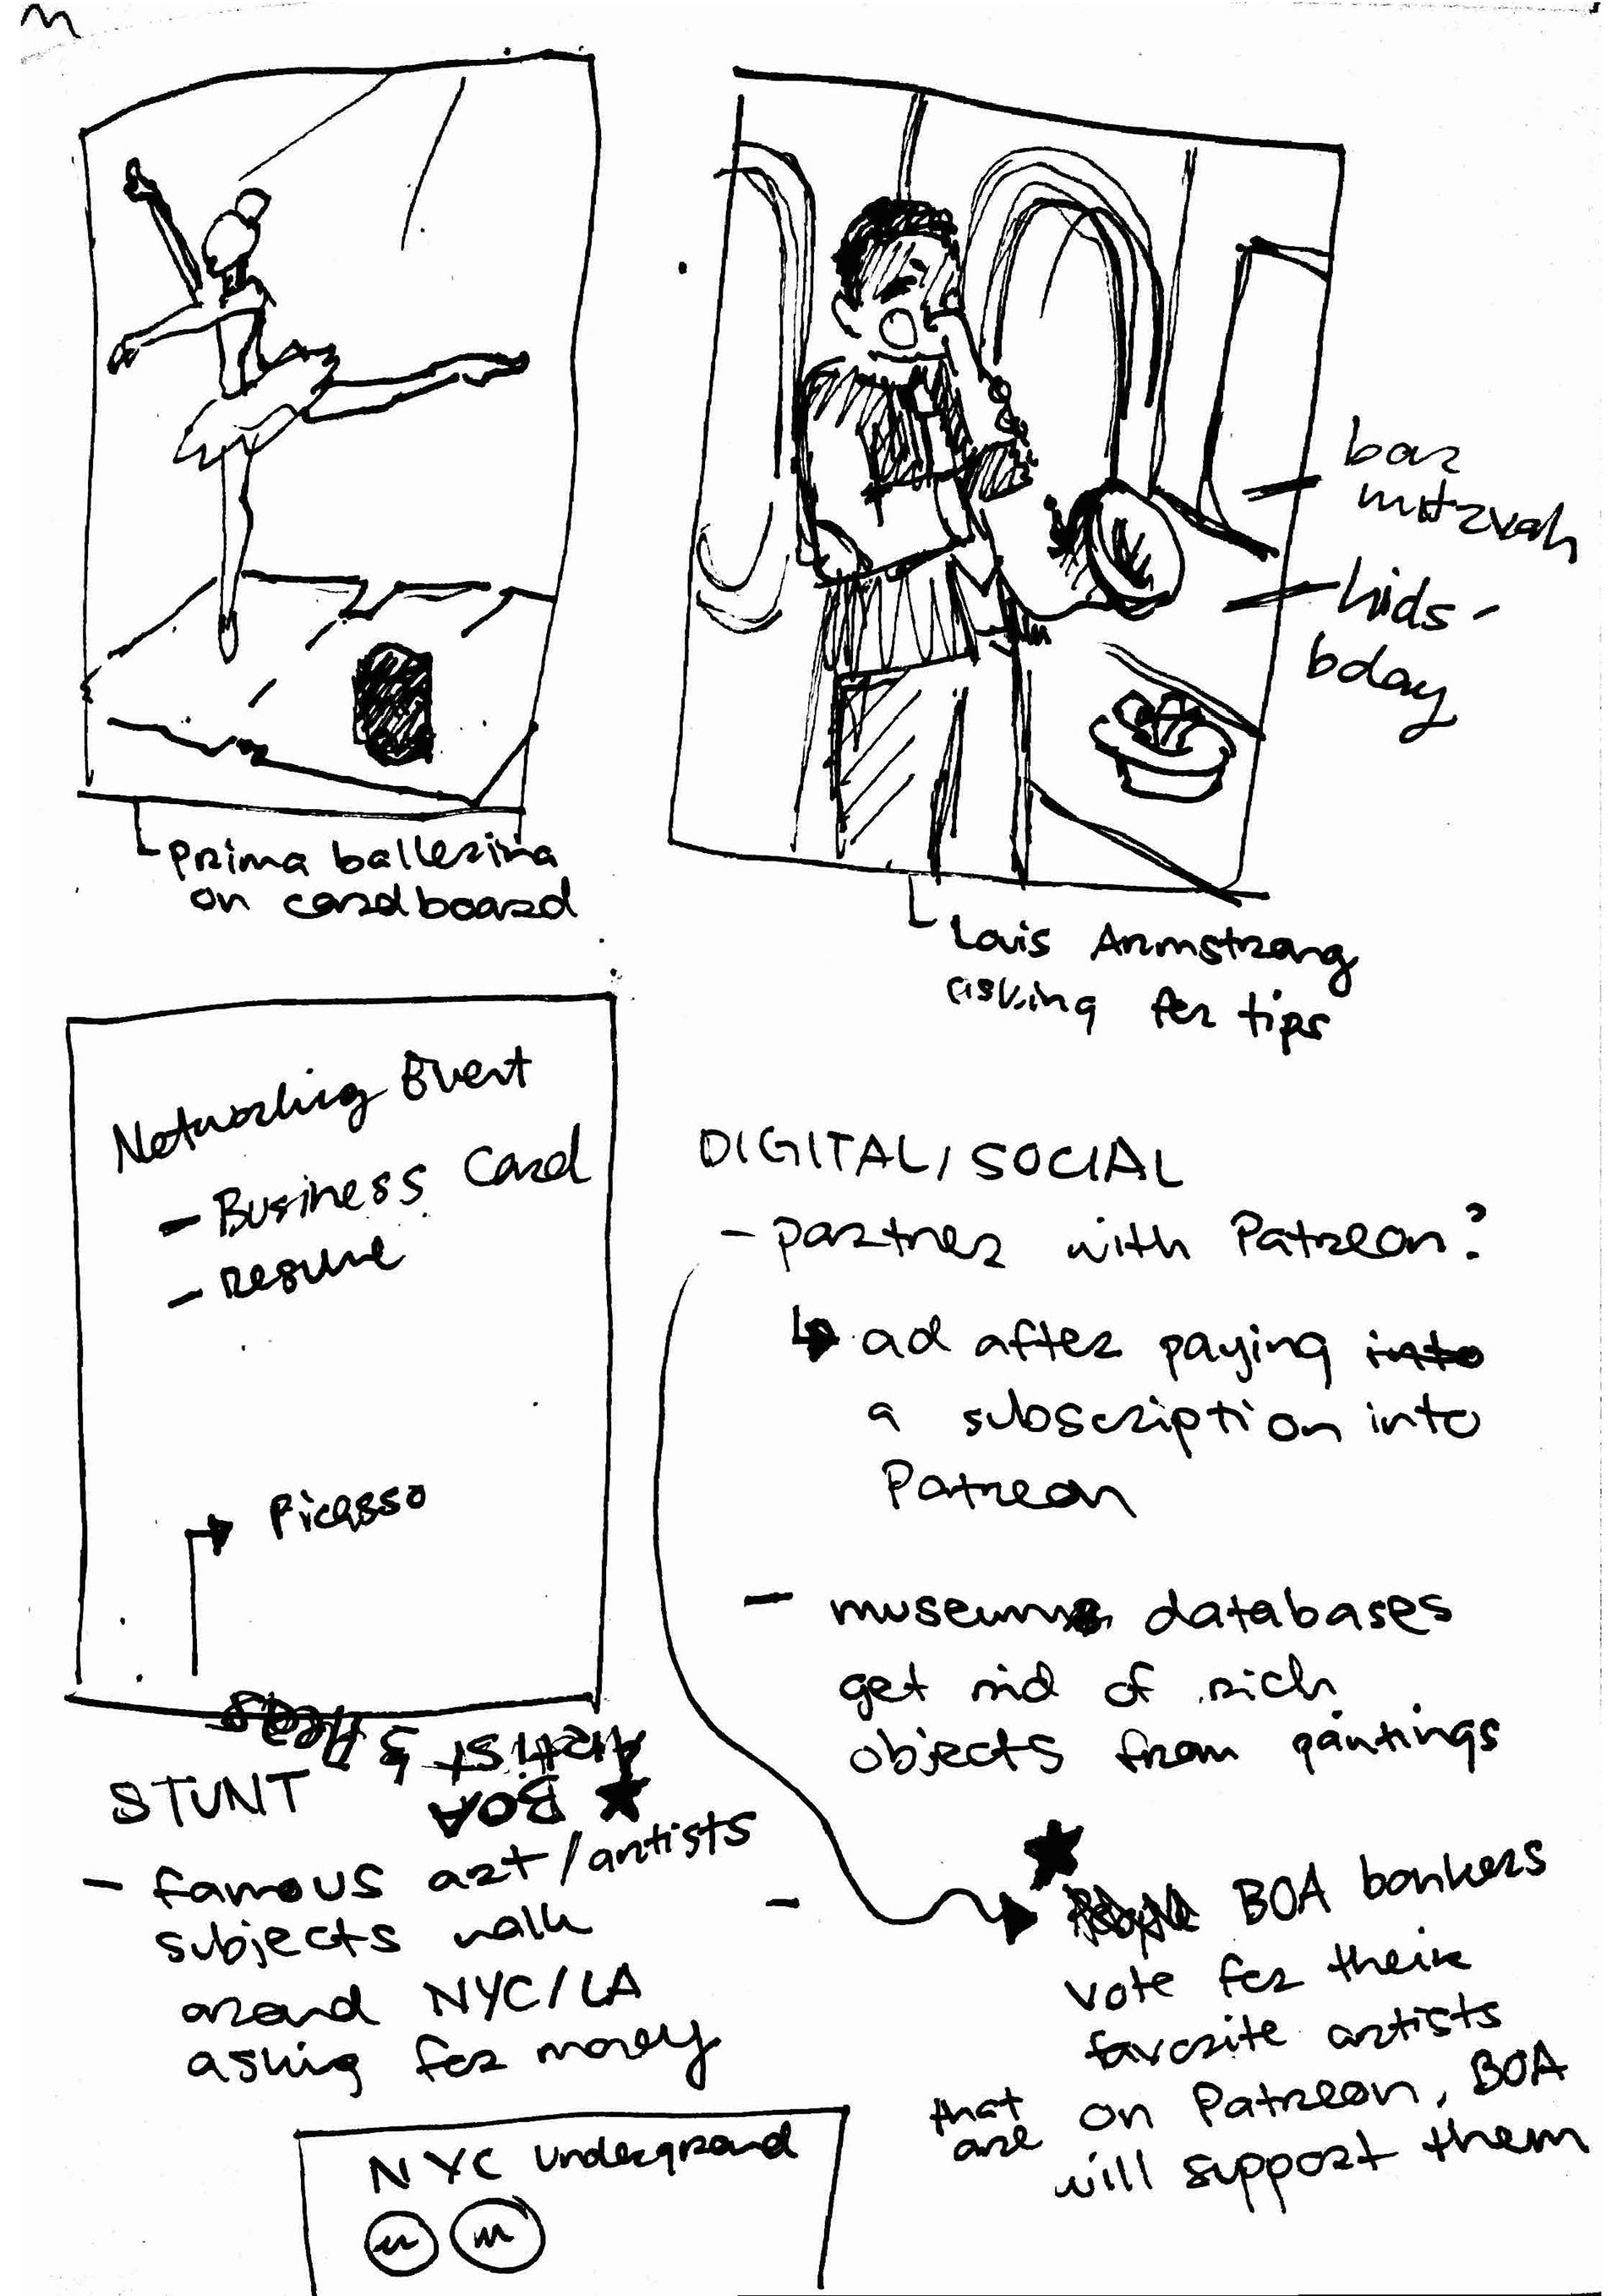 prima ballerina
on cardboard
bar
mitzvah
kids-
bday
Louis Armstrong
asking for tips
Networking Event
- Business Card
- resume
Picasso
DIGITAL/SOCIAL
- partner with Patreon?
ad after paying into
a subscription into
Patreon
- museum databases
get rid of rich
objects from paintings
- BOA bankers
vote for their
favorite artists
that are on Patreon, BOA
will support them
STUNT
- famous art/artists
subjects walk
around NYC/LA
asking for money
BOA
Artist's
NYC Underground